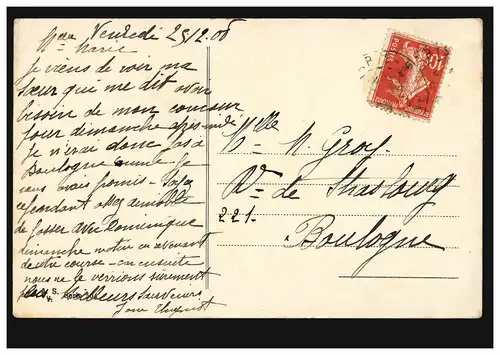 Vendredi 25/12.08
Marie
Je viens de voir ma
sœur qui me dit avoir
besoin de mon
pour dimanche après-midi
Je n'irai donc pas à
Boulogne comme je
vous avais promis - Soyez
cependant assez aimable
de passer avec Dominique
dimanche matin en revenant
de votre course - ou ensuite
nous ne le verrions sûrement
pas
Meilleurs souvenirs
S.
V.
POSTES
10
Mlle
M. Groy
de Strasbourg
221-
Boulogne